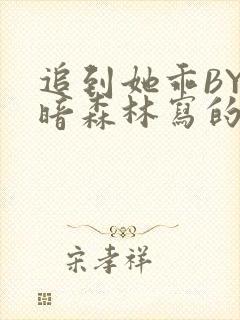 追到她乖BY
暗森林寫的
宋孝祥